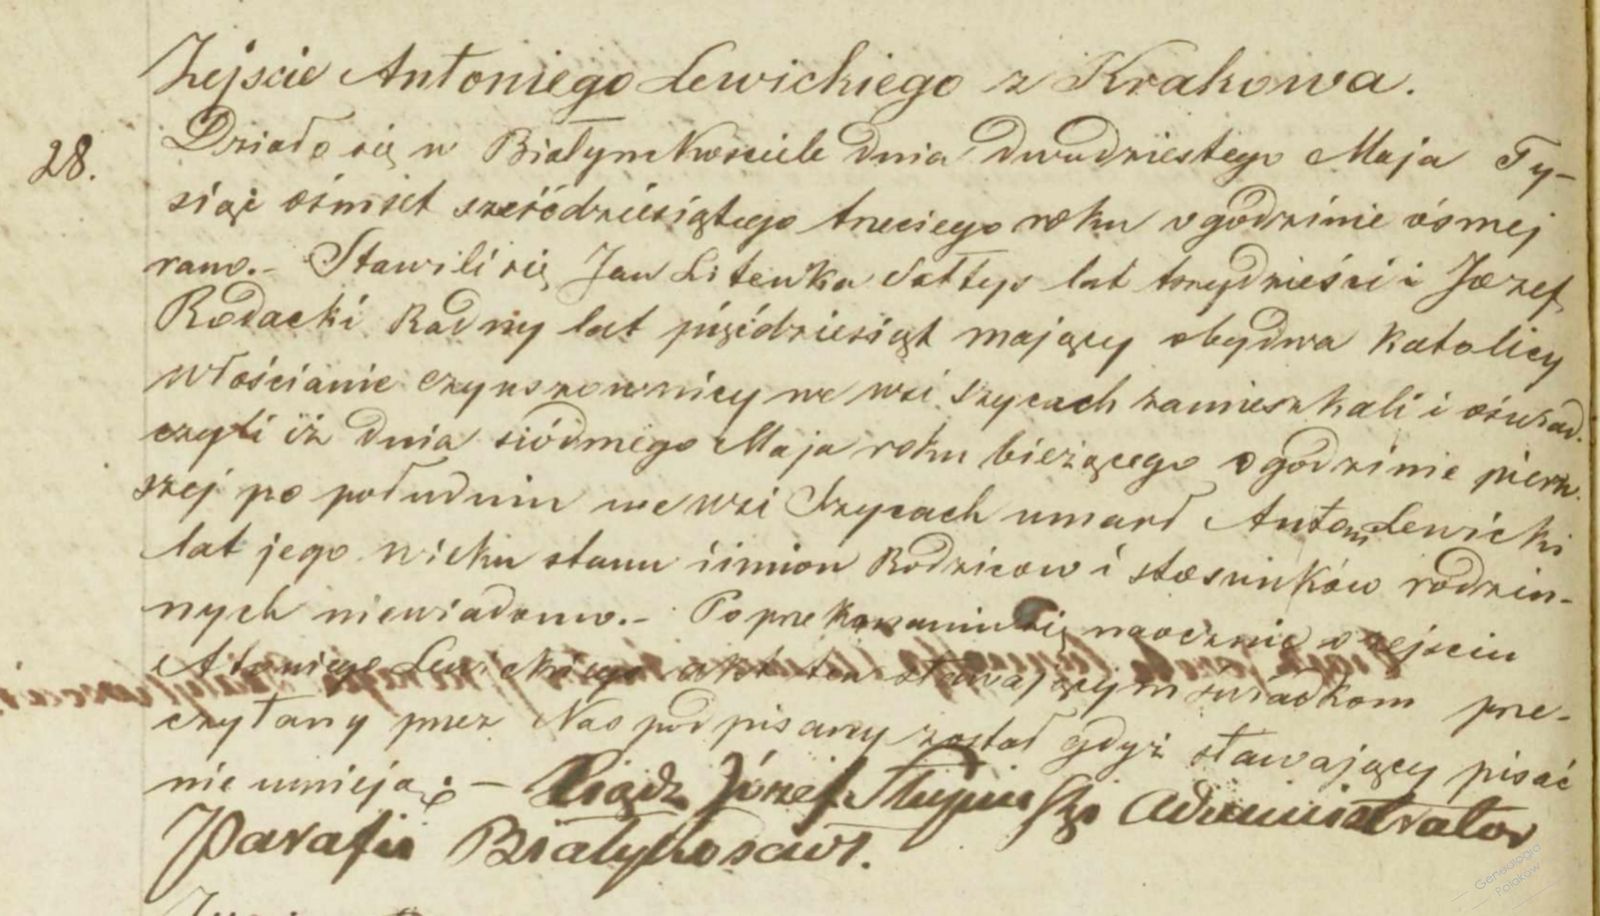 Zejscie Antoniego Lewickiego z Krakowa.
28.
Działo się w Białym Kościele dnia dwudziestego Maja Ty-
siąc ośmset sześćdziesiątego trzeciego roku o godzinie ósmej
rano.- Stawili się Jan Litewka Sołtys lat trzydzieści i Józef
Rodacki Radny lat pięćdziesiąt mający obydwa Katolicy
włościanie czynszownicy we wsi Szycach zamieszkali i oświad-
czyli iż dnia siódmego Maja roku bieżącego o godzinie pierw-
szej po południu we wsi Szycach umarł Antoni Lewicki
lat jego wieku stanu i imion Rodziców i stosunków rodzin-
nych niewiadomo.- Po przekonaniu się naocznie o zejściu
Antoniego Lewickiego akt ten stawającym świadkom prze-
czytany przez Nas podpisany został gdyż stawający pisać
nie umieją.- Ksiądz Józef Administrator
Parafii
Genealogia
Polaków